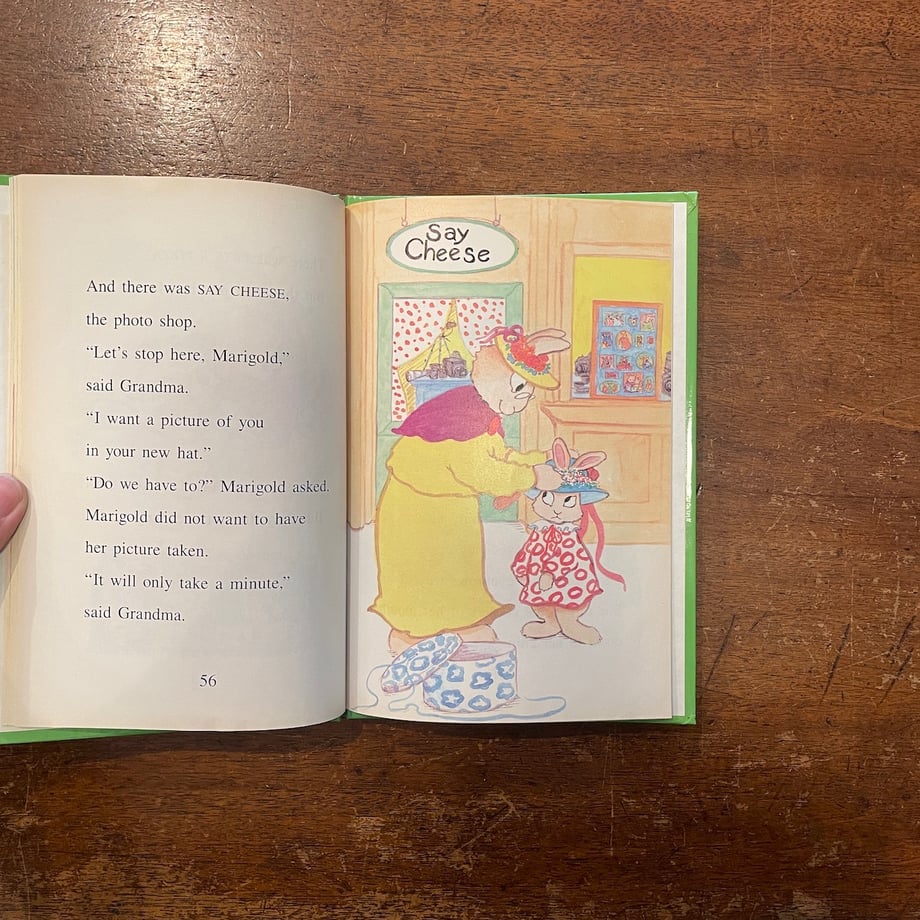 And there was SAY CHEESE,
the photo shop.
“Let’s stop here, Marigold,”
said Grandma.
“I want a picture of you
in your new hat.”
“Do we have to?” Marigold asked.
Marigold did not want to have
her picture taken.
“It will only take a minute,”
said Grandma.
56
Say
Cheese